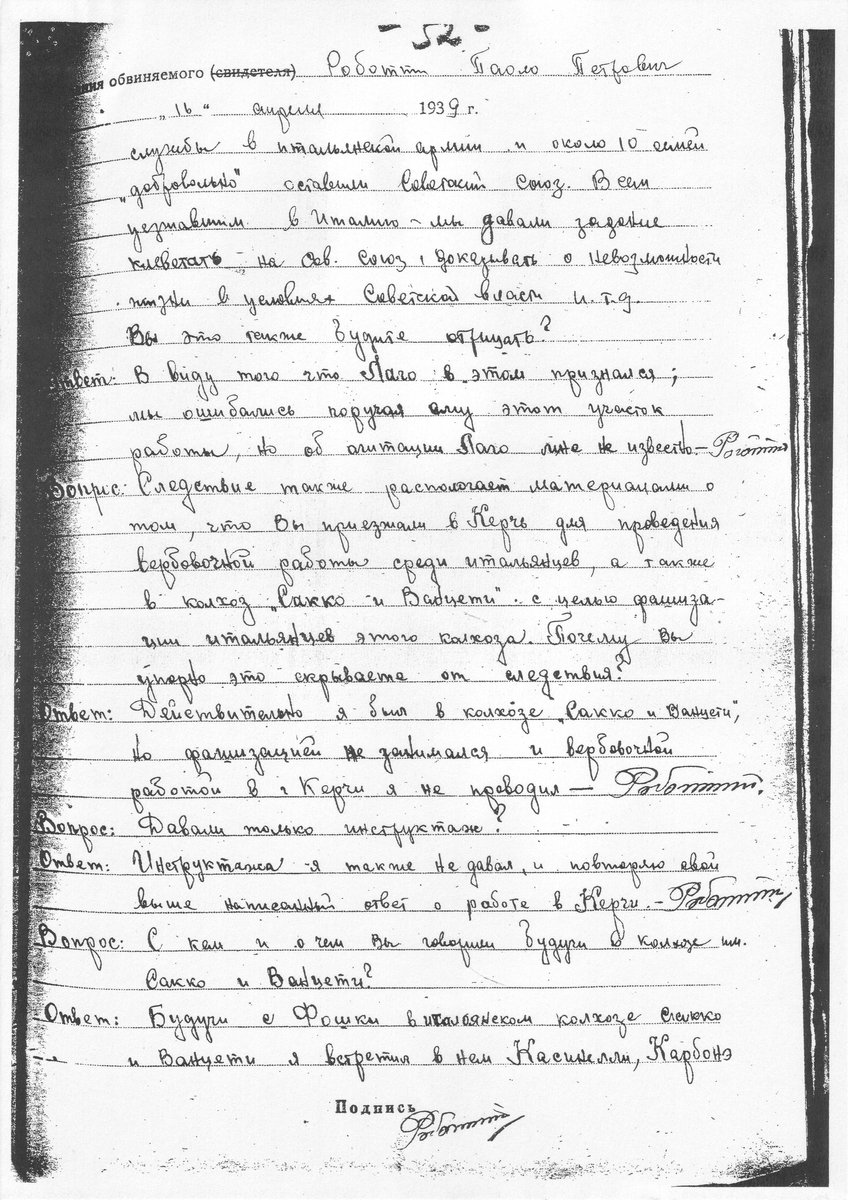 - 52 -
ния обвиняемого (свидетеля) Роботти Паоло Петрович
„16“ апреля 1939 г.
службы в итальянской армии и около 10 семей
„добровольно“ оставили Советский Союз. Всем
уезжавшим в Италию - мы давали задание
клеветать на Сов. Союз, доказывать о невозможности
жизни в условиях Советской власти и.т.д.
Вы это также будите отрицать?
Ответ: В виду того что Лаго в этом признался;
мы ошибались поручая ему этот участок
работы, но об агитации Лаго мне не известно. - Роботти
Вопрос: Следствие также распологает материалами о
том, что Вы приезжали в Керчь для проведения
вербовочной работы среди итальянцев, а также
в колхоз „Сакко и Ванцети“ с целью фашиза-
ции итальянцев этого колхоза. Почему Вы
упорно это скрываете от следствия?
Ответ: Действительно я был в колхозе „Сакко и Ванцети“,
но фашизацией не занимался и вербовочной
работой в г Керчи я не проводил — Роботти.
Вопрос: Давали только инструктаж?
Ответ: Инструктажа я также не давал, и повторяю свой
выше написанный ответ о работе в Керчи. - Роботти
Вопрос: С кем и о чем Вы говорили будучи в колхозе им.
Сакко и Ванцети?
Ответ: Будучи с Фошки в итальянском колхозе Сакко
и Ванцети я встретил в нем Касинелли, Карбонэ
Подпись
Роботти